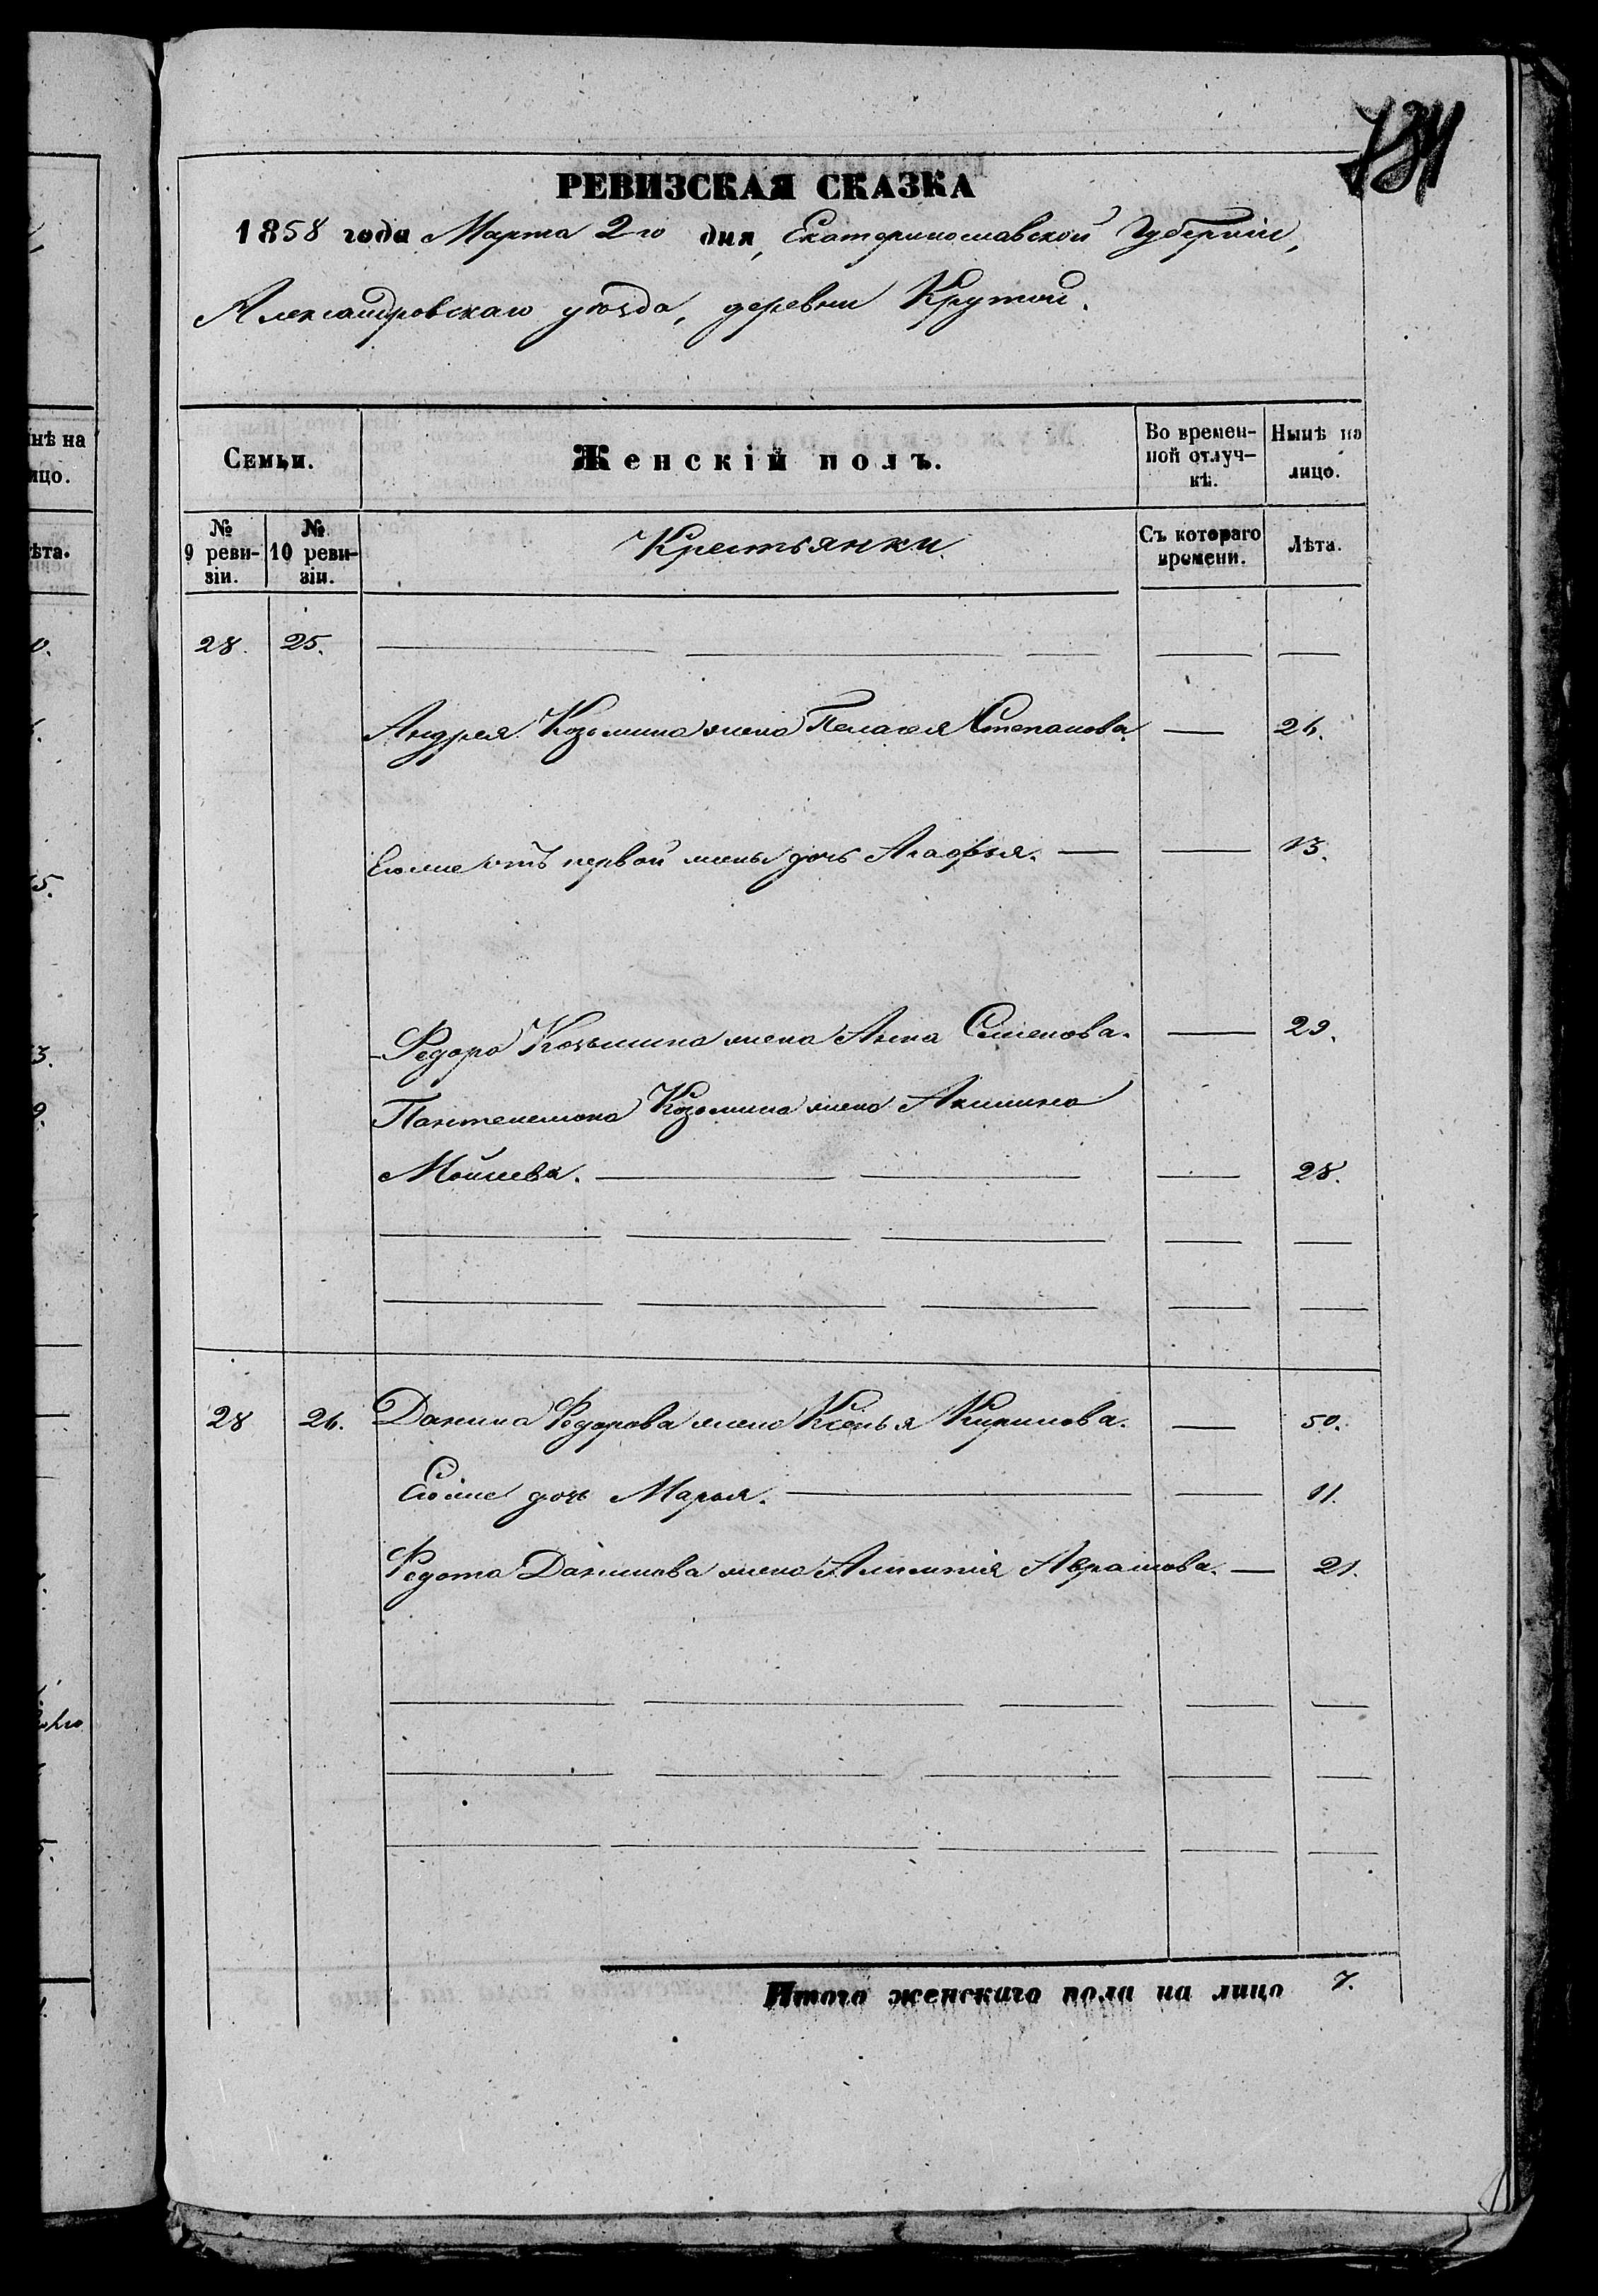 РЕВИЗСКАЯ СКАЗКА
1858 года Марта 2го дня, Екатеринославской Губерніи,
Александровскаго уѣзда, деревни Крутой.
Семьи. Женскій полъ. Во времен-ной отлуч-кѣ. Нынѣ на лицо.
№ 9 реви-зіи. № 10 реви-зіи. Крестьянки Съ котораго времени. Лѣта.
28. 25.
Андрея Козьмина жена Пелагея Степанова 26.
Егоже отъ первой жены дочь Агафья. 13.
Федора Козьмина жена Анна Семенова. 29.
Пантелемона Козьмина жена Акилина
Мойсева. 28.
28 26. Данила Федорова жена Ксенья Кирилова. 50.
Егоже дочь Марья. 11.
Федота Данилова жена Авраамова. 21.
Итого женскаго пола на лицо 7.
нѣ на
ицо.
ѣта.